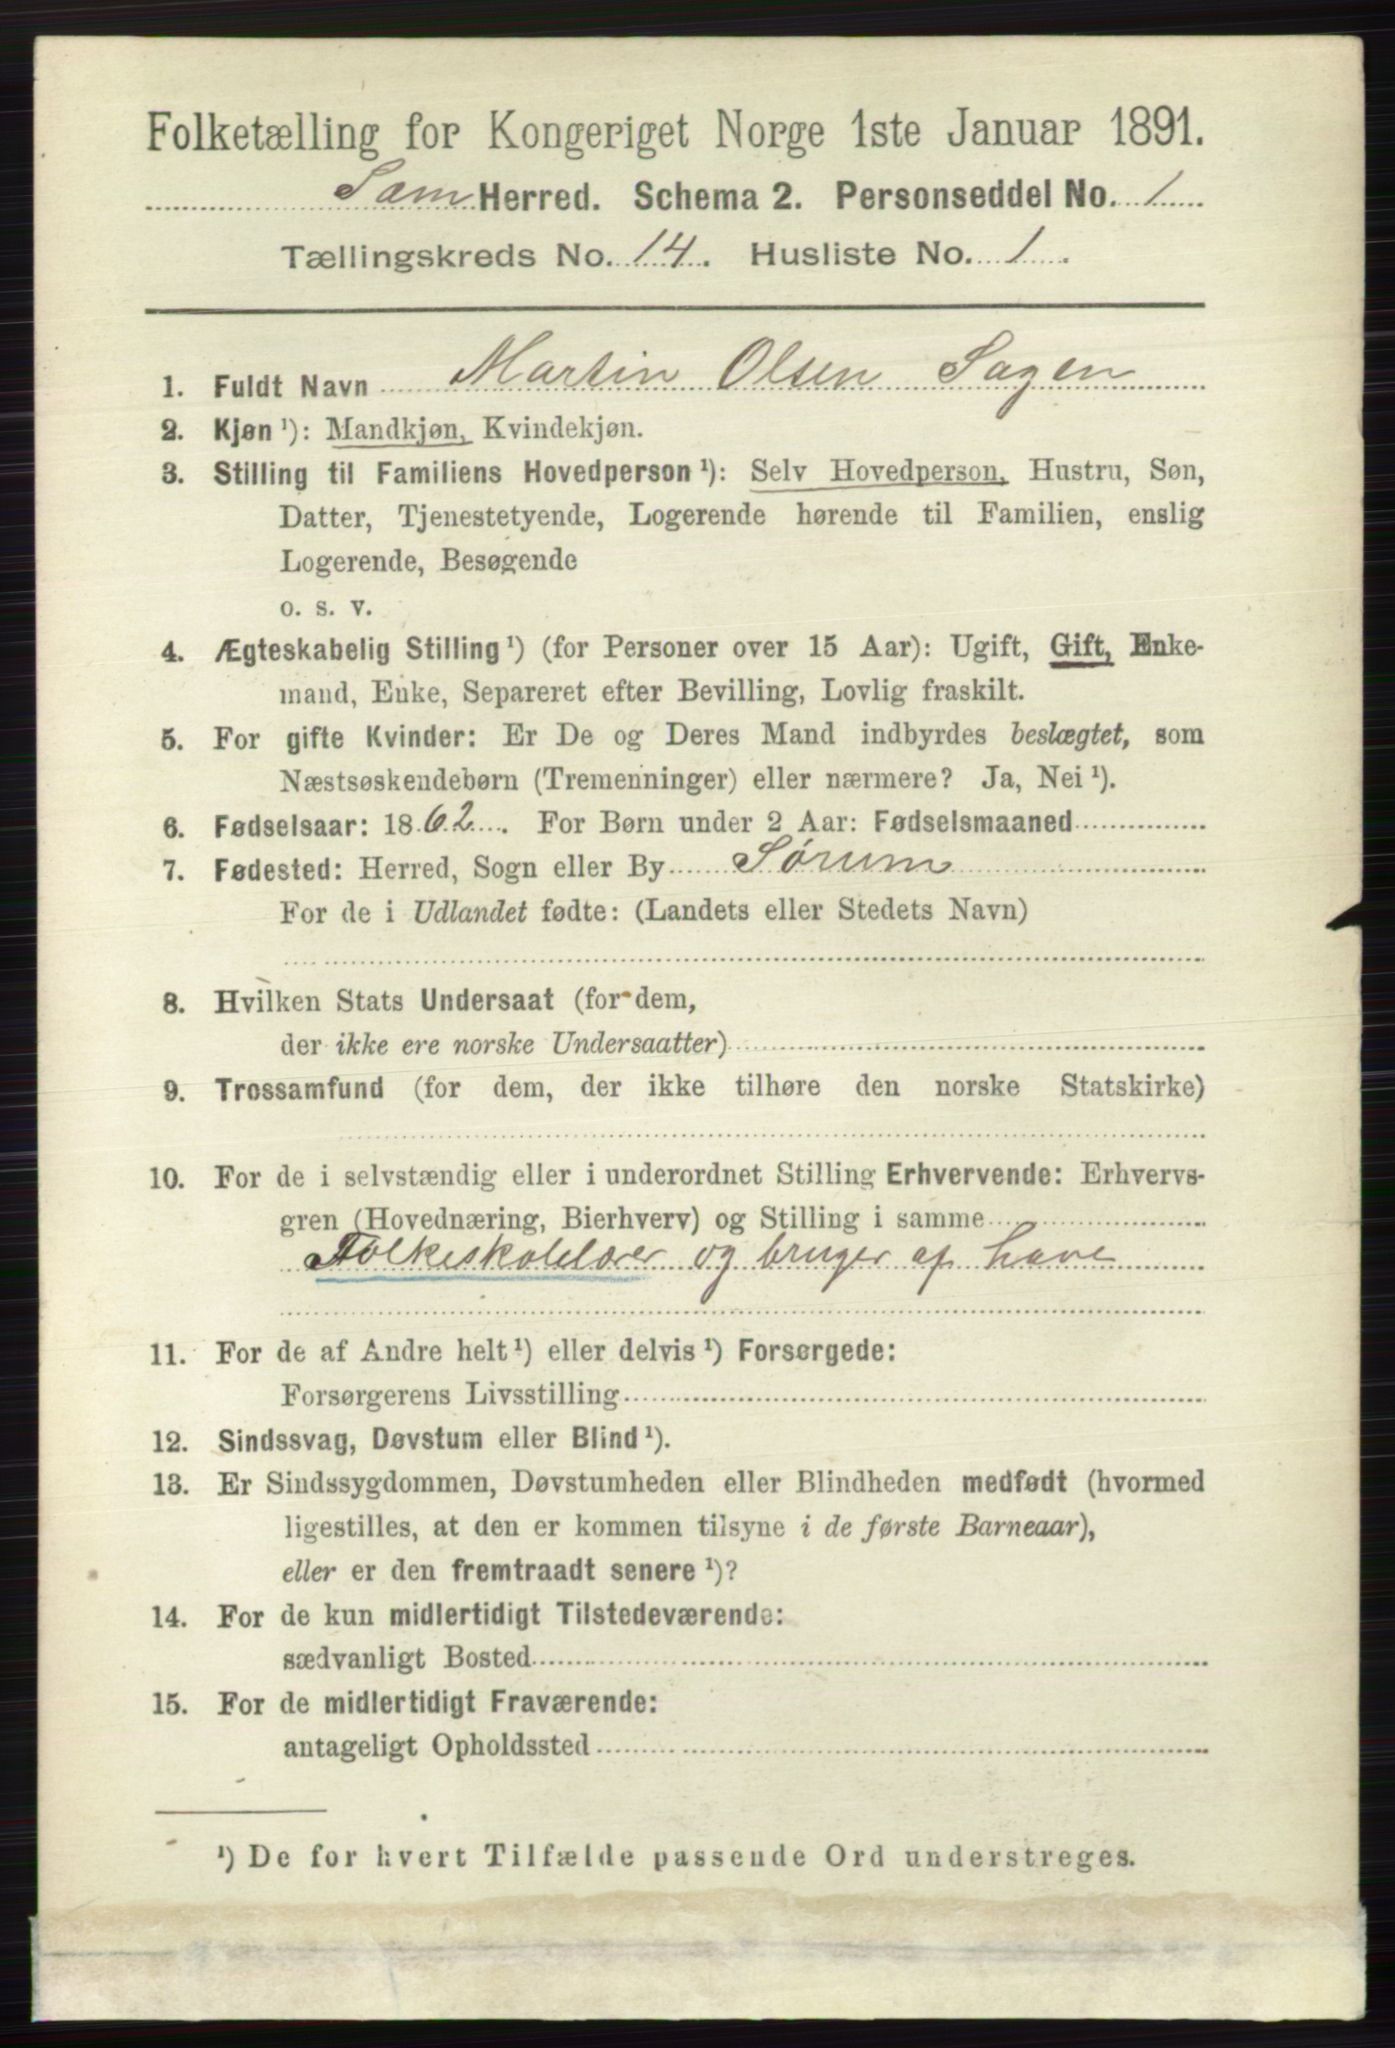 Folketælling for Kongeriget Norge 1ste Januar 1891.
Sem Herred. Schema 2. Personseddel No. 1
Tællingskreds No. 14. Husliste No. 1.
1. Fuldt Navn Martin Olsen Sagen
2. Kjøn ¹): Mandkjøn, Kvindekjøn.
3. Stilling til Familiens Hovedperson ¹): Selv Hovedperson, Hustru, Søn,
Datter, Tjenestetyende, Logerende hørende til Familien, enslig
Logerende, Besøgende
o. s. v.
4. Ægteskabelig Stilling ¹) (for Personer over 15 Aar): Ugift, Gift, Enke-
mand, Enke, Separeret efter Bevilling, Lovlig fraskilt.
5. For gifte Kvinder: Er De og Deres Mand indbyrdes beslægtet, som
Næstsøskendebørn (Tremenninger) eller nærmere? Ja, Nei ¹).
6. Fødselsaar: 1862. For Børn under 2 Aar: Fødselsmaaned
7. Fødested: Herred, Sogn eller By Sørum
For de i Udlandet fødte: (Landets eller Stedets Navn)
8. Hvilken Stats Undersaat (for dem,
der ikke ere norske Undersaatter)
9. Trossamfund (for dem, der ikke tilhøre den norske Statskirke)
10. For de i selvstændig eller i underordnet Stilling Erhvervende: Erhvervs-
gren (Hovednæring, Bierhverv) og Stilling i samme
Folkeskolelærer og bruger af have
11. For de af Andre helt ¹) eller delvis ¹) Forsørgede:
Forsørgerens Livsstilling
12. Sindssvag, Døvstum eller Blind ¹).
13. Er Sindssygdommen, Døvstumheden eller Blindheden medfødt (hvormed
ligestilles, at den er kommen tilsyne i de første Barneaar),
eller er den fremtraadt senere ¹)?
14. For de kun midlertidigt Tilstedeværende:
sædvanligt Bosted
15. For de midlertidigt Fraværende:
antageligt Opholdssted
¹) De for hvert Tilfælde passende Ord understreges.